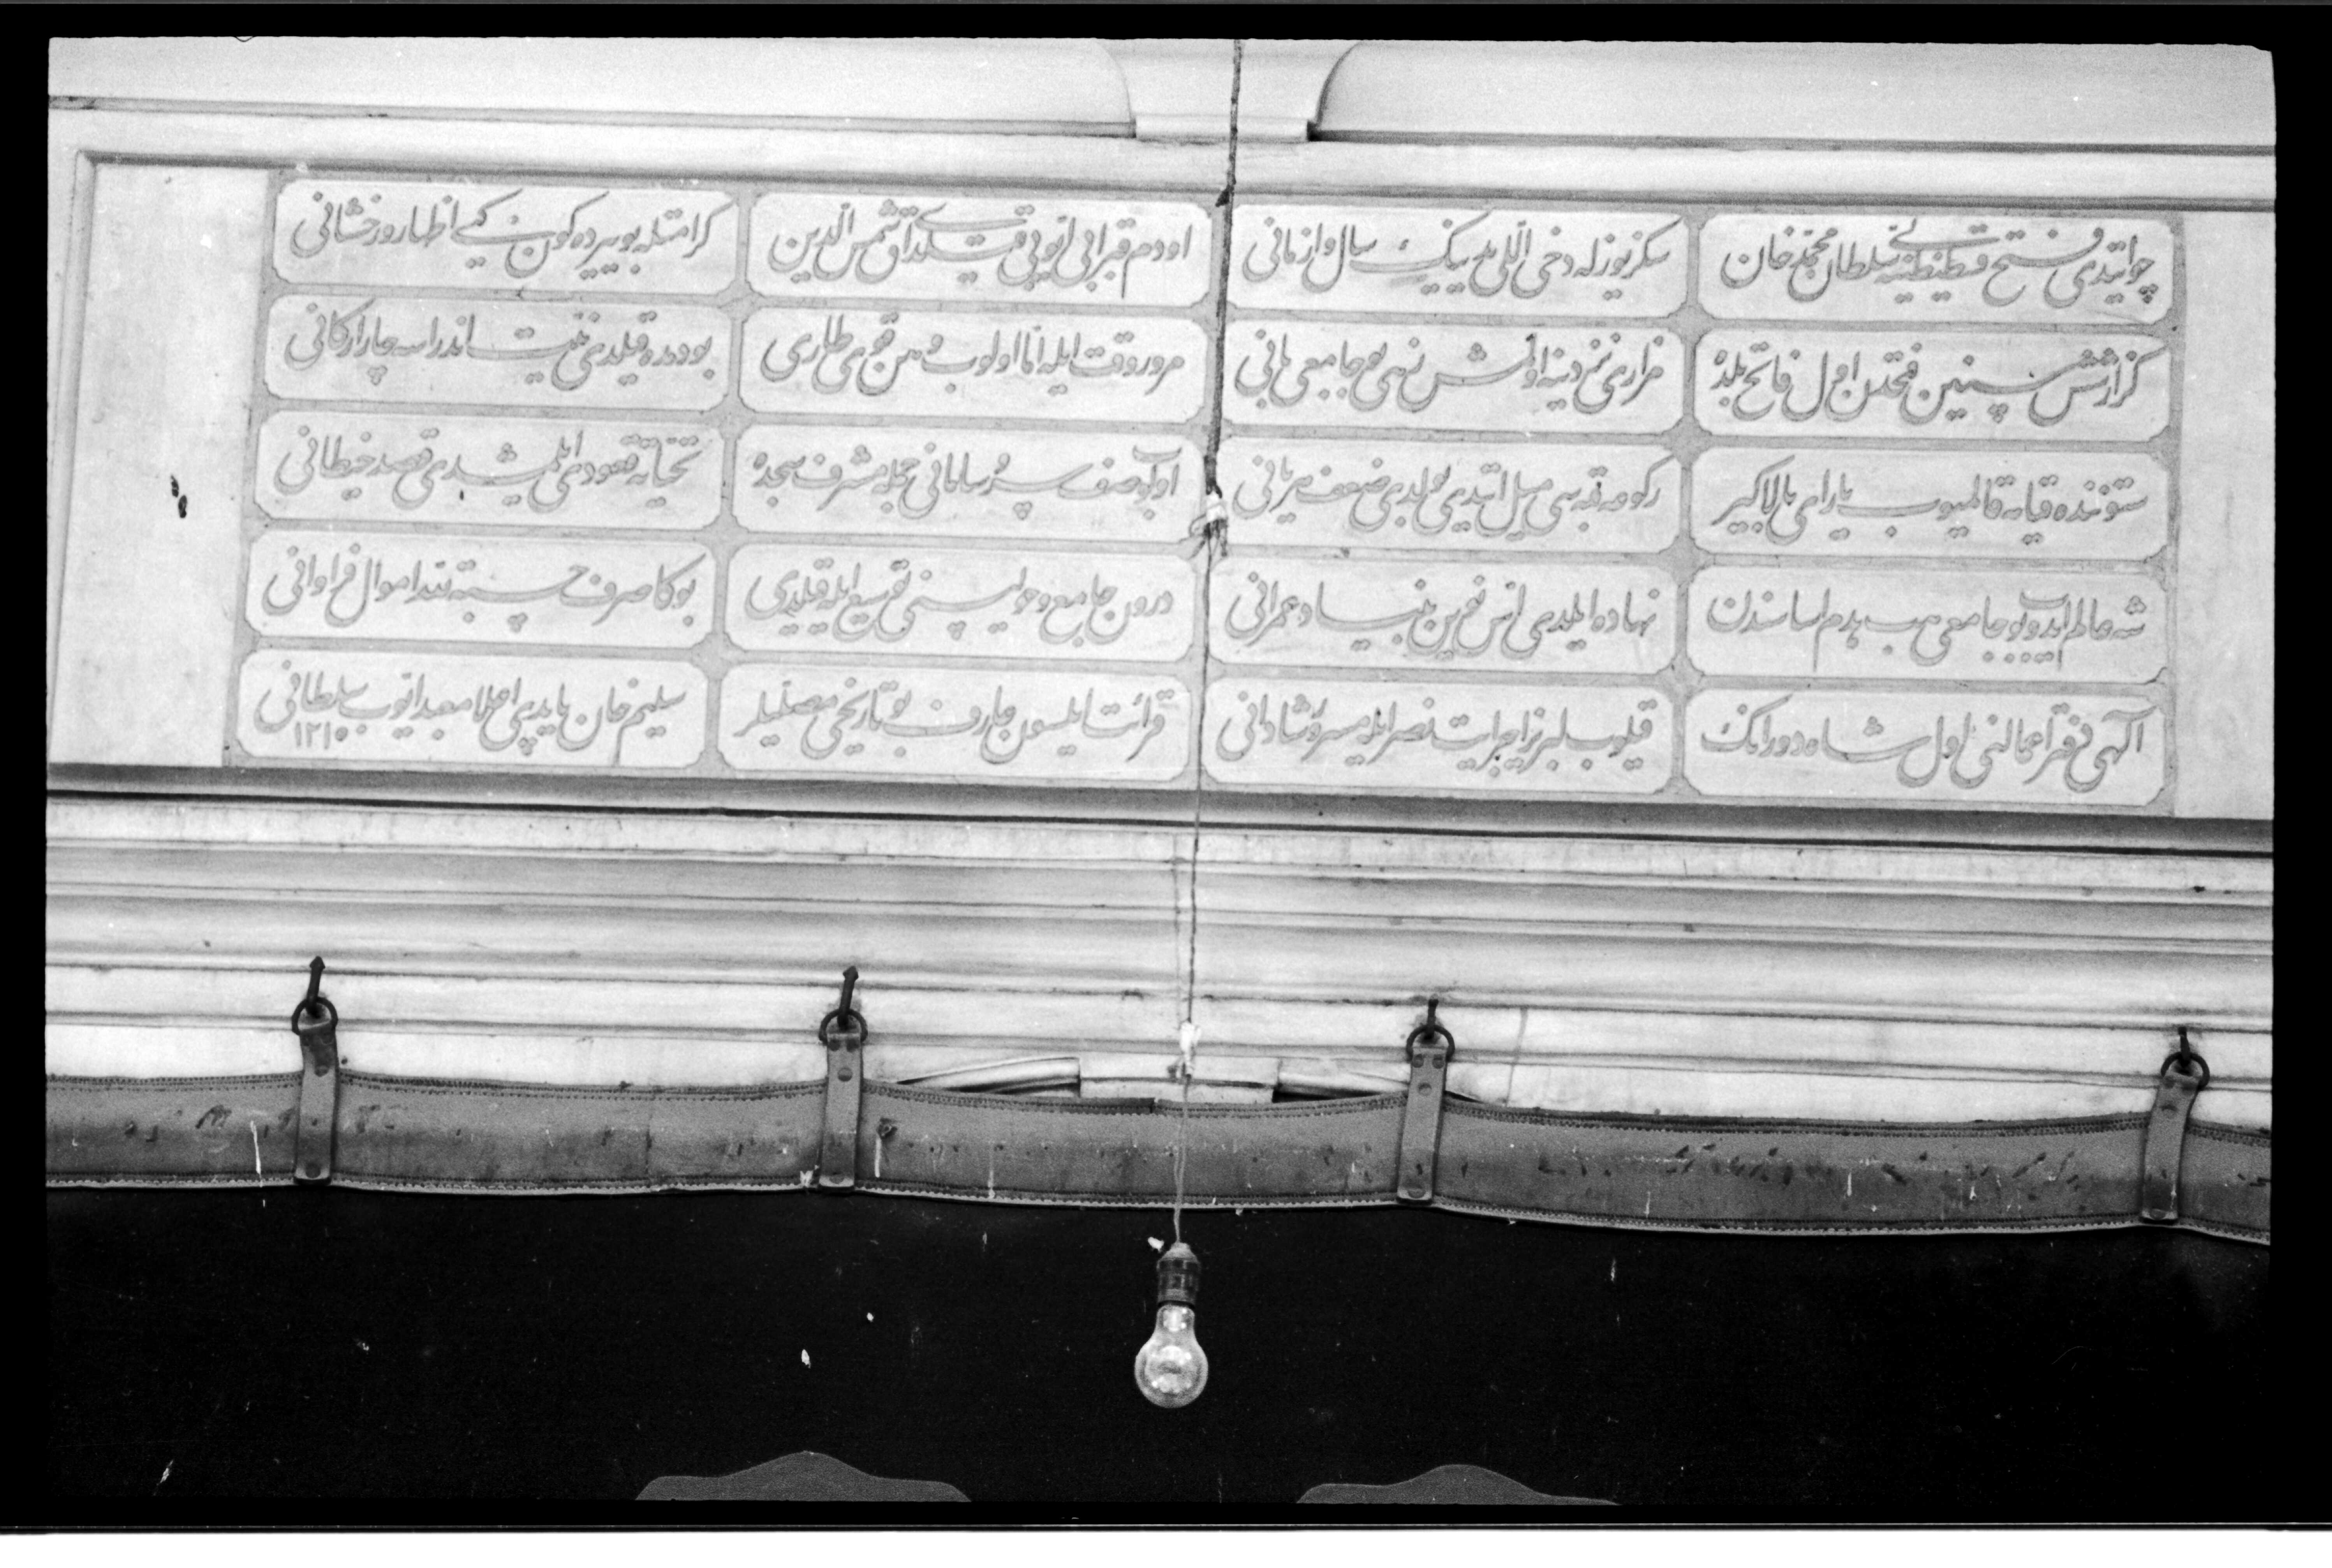 چو ایتدی فتح قسطنطنیه یی سلطان محمد خان
سکز یوز له دخی اللی یدییک سال و ازمانی
او دم قبر ابی ایوبی قیلدی آق شمس الدین
کرامتله بو یرده کون کبی اظهار و رخشانی
سنین فتحدن اول فاتح بلده
مزاری نزدینه اولمش نهی بو جامعی بانی
مرور وقت ایله اما اولوب وهن قوی طاری
بو دمده قیلدی نیت اندراسه چار ارکانی
ستوننده قیامه قالمیوب یارای بالاکبر
رکوعه قبه سی میل ایتدی بولدی ضعف میزانی
اولوب صف سر و سامانی جمله مشرف سجده
تحیاته قعودی ایلمشدی قصد حیطانی
شه عالم ایدوب بو جامعی هپ هدم اساسندن
نهاده ایلدی از نو بنیاد عمرانی
درون جامع و حولیسنی توسیع ایله قیلدی
بوکا صرف حسبة لله اموال فراوانی
آلهی اول شاه دورانك
لبریز نصر ایله مسرور شادانی
قرائت ایلسون عارف بو تاریخی مصلیلر
سلیم خان یاپدی اعلا معبد ایوب سلطانی
١٢١٥